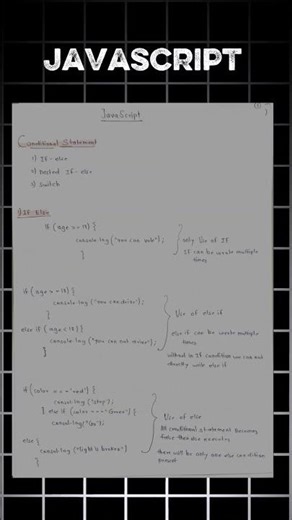 JAVASCRIPT
JavaScript
Conditional Statement
1) If - else
2) Nested If - else
3) Switch
1) If - Else
if (age >= 18) {
console.log ("you can vote");
}
only Use of If
It can be wrote multiple
times
if (age > = 18) {
console.log ("you can drive");
}
else if (age < 18) {
console.log ("you can not drive");
Use of else if
else if can be wrote multiple
times
without an If condition we can not
directly write else if
if (color === "red") {
console.log ("stop");
} else if (color === "Green") {
console.log ("Go");
}
else {
console.log ("light is broken")
}
Use of else
All conditional statement becomes
false then else executes
there will be only one else condition
present